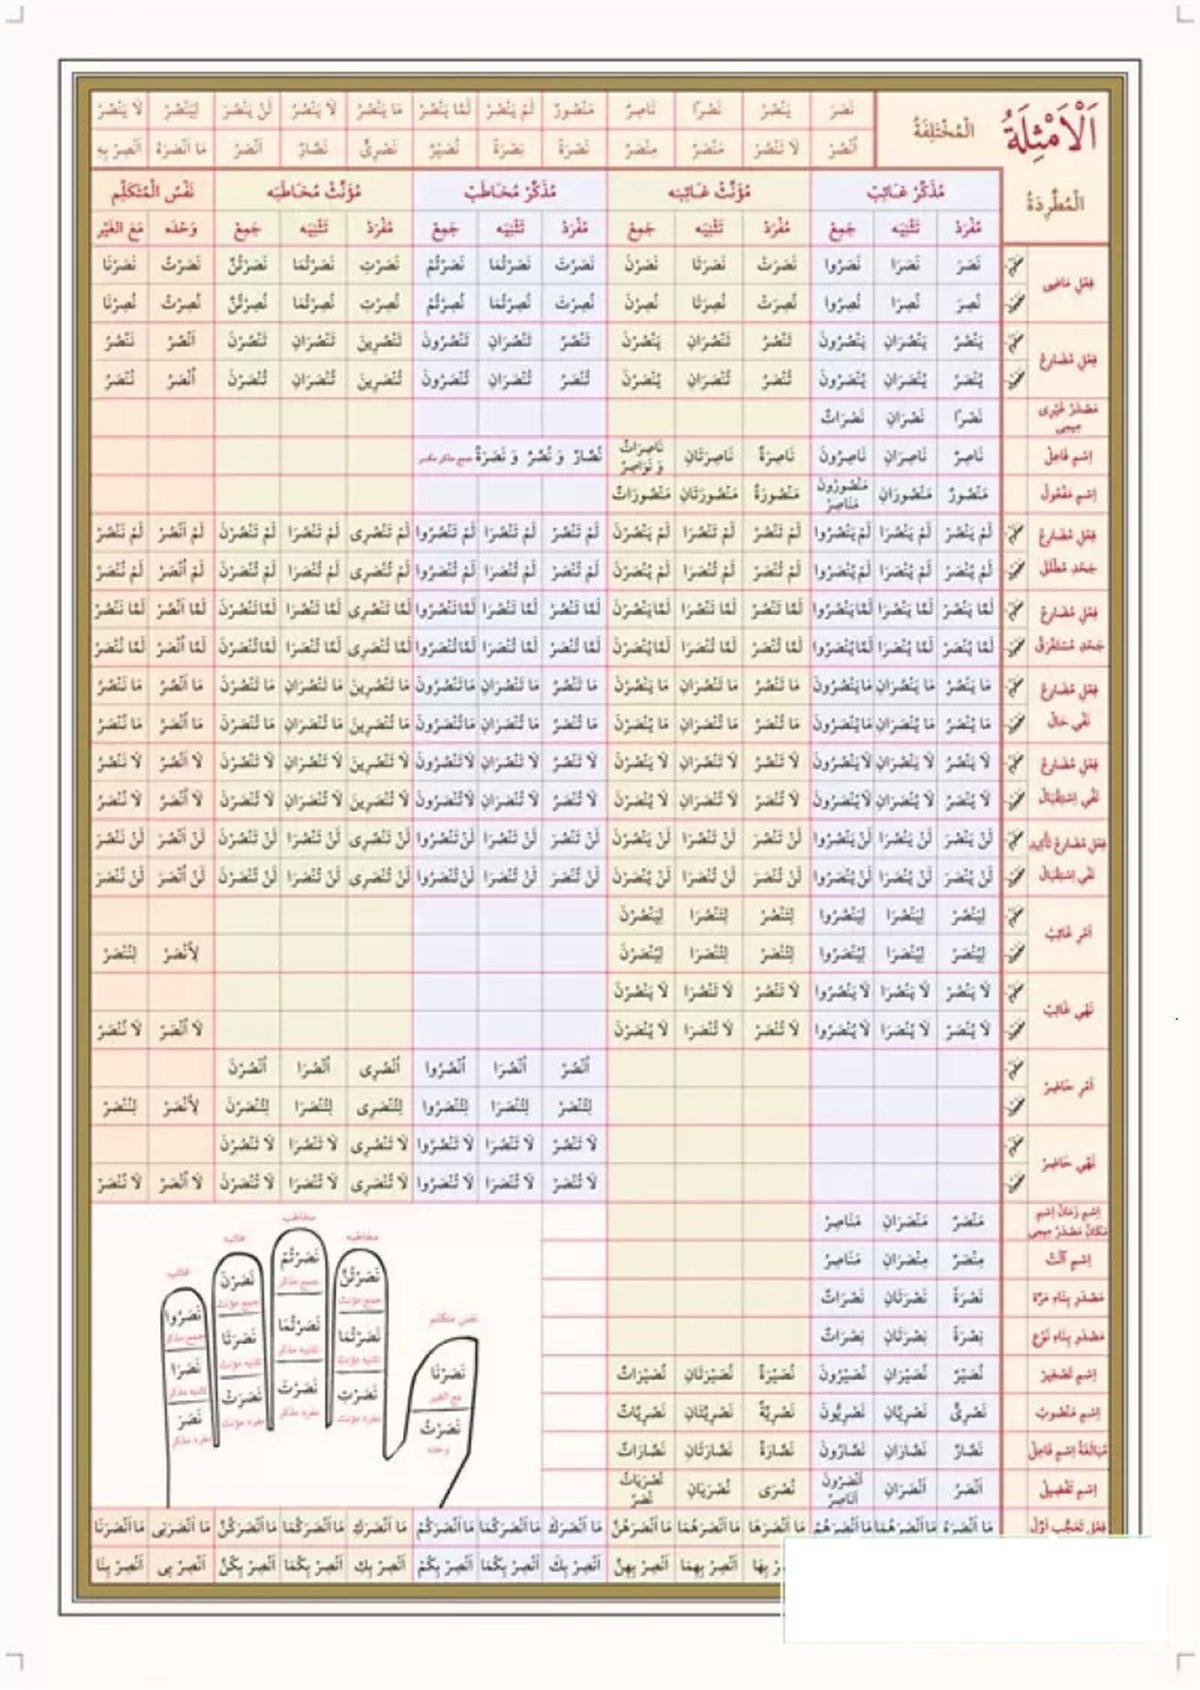 اَلْاَمْثِلَةُ
الْمُخْتَلِفَةُ
نَصَرَ يَنْصُرُ نَصْرًا نَاصِرٌ مَنْصُورٌ لَمْ يَنْصُرْ لَمَّا يَنْصُرْ مَا يَنْصُرُ لَا يَنْصُرُ لَنْ يَنْصُرَ لِيَنْصُرْ لَا يَنْصُرْ
اُنْصُرْ لَا تَنْصُرْ مَنْصَرٌ مِنْصَرٌ نَصْرَةٌ نِصْرَةٌ نُصَيْرٌ نَصْرِىٌّ نَصَّارٌ اَنْصَرُ مَا اَنْصَرَهُ اَنْصِرْ بِهِ
الْمُطَّرِدَةُ
مُذَكَّرْ غَائِبْ مُؤَنَّثْ غَائِبَه مُذَكَّرْ مُخَاطَبْ مُؤَنَّثْ مُخَاطَبَه نَفْسُ الْمُتَكَلِّمِ
مُفْرَدْ تَثْنِيَه جَمِعْ مُفْرَدْ تَثْنِيَه جَمِعْ مُفْرَدْ تَثْنِيَه جَمِعْ مُفْرَدْ تَثْنِيَه جَمِعْ وَحْدَه مَعَ الْغَيْرِ
فِعْلِ مَاضِى
نَصَرَ نَصَرَا نَصَرُوا نَصَرَتْ نَصَرَتَا نَصَرْنَ نَصَرْتَ نَصَرْتُمَا نَصَرْتُمْ نَصَرْتِ نَصَرْتُمَا نَصَرْتُنَّ نَصَرْتُ نَصَرْنَا
نُصِرَ نُصِرَا نُصِرُوا نُصِرَتْ نُصِرَتَا نُصِرْنَ نُصِرْتَ نُصِرْتُمَا نُصِرْتُمْ نُصِرْتِ نُصِرْتُمَا نُصِرْتُنَّ نُصِرْتُ نُصِرْنَا
فِعْلِ مُضَارِعْ
يَنْصُرُ يَنْصُرَانِ يَنْصُرُونَ تَنْصُرُ تَنْصُرَانِ يَنْصُرْنَ تَنْصُرُ تَنْصُرَانِ تَنْصُرُونَ تَنْصُرِينَ تَنْصُرَانِ تَنْصُرْنَ اَنْصُرُ نَنْصُرُ
يُنْصَرُ يُنْصَرَانِ يُنْصَرُونَ تُنْصَرُ تُنْصَرَانِ يُنْصَرْنَ تُنْصَرُ تُنْصَرَانِ تُنْصَرُونَ تُنْصَرِينَ تُنْصَرَانِ تُنْصَرْنَ اُنْصَرُ نُنْصَرُ
مَصْدَرْ غَيْرِى مِيمِى نَصْرًا نَصْرَانِ نَصْرَاتٌ
اِسْمِ فَاعِلْ نَاصِرٌ نَاصِرَانِ نَاصِرُونَ نَاصِرَةٌ نَاصِرَتَانِ نَاصِرَاتٌ وَ نَوَاصِرُ نُصَّارٌ وَ نُصَّرٌ وَ نَصَرَةٌ جمع مذكر مكسر
اِسْمِ مَفْعُولْ مَنْصُورٌ مَنْصُورَانِ مَنْصُورُونَ مَنَاصِرُ مَنْصُورَةٌ مَنْصُورَتَانِ مَنْصُورَاتٌ
فِعْلِ مُضَارِعْ جَحْدِ مُطْلَقْ
لَمْ يَنْصُرْ لَمْ يَنْصُرَا لَمْ يَنْصُرُوا لَمْ تَنْصُرْ لَمْ تَنْصُرَا لَمْ يَنْصُرْنَ لَمْ تَنْصُرْ لَمْ تَنْصُرَا لَمْ تَنْصُرُوا لَمْ تَنْصُرِى لَمْ تَنْصُرَا لَمْ تَنْصُرْنَ لَمْ اَنْصُرْ لَمْ نَنْصُرْ
لَمْ يُنْصَرْ لَمْ يُنْصَرَا لَمْ يُنْصَرُوا لَمْ تُنْصَرْ لَمْ تُنْصَرَا لَمْ يُنْصَرْنَ لَمْ تُنْصَرْ لَمْ تُنْصَرَا لَمْ تُنْصَرُوا لَمْ تُنْصَرِى لَمْ تُنْصَرَا لَمْ تُنْصَرْنَ لَمْ اُنْصَرْ لَمْ نُنْصَرْ
فِعْلِ مُضَارِعْ جَحْدِ مُسْتَغْرَقْ
لَمَّا يَنْصُرْ لَمَّا يَنْصُرَا لَمَّا يَنْصُرُوا لَمَّا تَنْصُرْ لَمَّا تَنْصُرَا لَمَّا يَنْصُرْنَ لَمَّا تَنْصُرْ لَمَّا تَنْصُرَا لَمَّا تَنْصُرُوا لَمَّا تَنْصُرِى لَمَّا تَنْصُرَا لَمَّا تَنْصُرْنَ لَمَّا اَنْصُرْ لَمَّا نَنْصُرْ
لَمَّا يُنْصَرْ لَمَّا يُنْصَرَا لَمَّا يُنْصَرُوا لَمَّا تُنْصَرْ لَمَّا تُنْصَرَا لَمَّا يُنْصَرْنَ لَمَّا تُنْصَرْ لَمَّا تُنْصَرَا لَمَّا تُنْصَرُوا لَمَّا تُنْصَرِى لَمَّا تُنْصَرَا لَمَّا تُنْصَرْنَ لَمَّا اُنْصَرْ لَمَّا نُنْصَرْ
فِعْلِ مُضَارِعْ نَفْىِ حَالْ
مَا يَنْصُرُ مَا يَنْصُرَانِ مَا يَنْصُرُونَ مَا تَنْصُرُ مَا تَنْصُرَانِ مَا يَنْصُرْنَ مَا تَنْصُرُ مَا تَنْصُرَانِ مَا تَنْصُرُونَ مَا تَنْصُرِينَ مَا تَنْصُرَانِ مَا تَنْصُرْنَ مَا اَنْصُرُ مَا نَنْصُرُ
مَا يُنْصَرُ مَا يُنْصَرَانِ مَا يُنْصَرُونَ مَا تُنْصَرُ مَا تُنْصَرَانِ مَا يُنْصَرْنَ مَا تُنْصَرُ مَا تُنْصَرَانِ مَا تُنْصَرُونَ مَا تُنْصَرِينَ مَا تُنْصَرَانِ مَا تُنْصَرْنَ مَا اُنْصَرُ مَا نُنْصَرُ
فِعْلِ مُضَارِعْ نَفْىِ اِسْتِقْبَالْ
لَا يَنْصُرُ لَا يَنْصُرَانِ لَا يَنْصُرُونَ لَا تَنْصُرُ لَا تَنْصُرَانِ لَا يَنْصُرْنَ لَا تَنْصُرُ لَا تَنْصُرَانِ لَا تَنْصُرُونَ لَا تَنْصُرِينَ لَا تَنْصُرَانِ لَا تَنْصُرْنَ لَا اَنْصُرُ لَا نَنْصُرُ
لَا يُنْصَرُ لَا يُنْصَرَانِ لَا يُنْصَرُونَ لَا تُنْصَرُ لَا تُنْصَرَانِ لَا يُنْصَرْنَ لَا تُنْصَرُ لَا تُنْصَرَانِ لَا تُنْصَرُونَ لَا تُنْصَرِينَ لَا تُنْصَرَانِ لَا تُنْصَرْنَ لَا اُنْصَرُ لَا نُنْصَرُ
فِعْلِ مُضَارِعْ تَأْكِيدِ نَفْىِ اِسْتِقْبَالْ
لَنْ يَنْصُرَ لَنْ يَنْصُرَا لَنْ يَنْصُرُوا لَنْ تَنْصُرَ لَنْ تَنْصُرَا لَنْ يَنْصُرْنَ لَنْ تَنْصُرَ لَنْ تَنْصُرَا لَنْ تَنْصُرُوا لَنْ تَنْصُرِى لَنْ تَنْصُرَا لَنْ تَنْصُرْنَ لَنْ اَنْصُرَ لَنْ نَنْصُرَ
لَنْ يُنْصَرَ لَنْ يُنْصَرَا لَنْ يُنْصَرُوا لَنْ تُنْصَرَ لَنْ تُنْصَرَا لَنْ يُنْصَرْنَ لَنْ تُنْصَرَ لَنْ تُنْصَرَا لَنْ تُنْصَرُوا لَنْ تُنْصَرِى لَنْ تُنْصَرَا لَنْ تُنْصَرْنَ لَنْ اُنْصَرَ لَنْ نُنْصَرَ
اَمْرِ غَائِبْ
لِيَنْصُرْ لِيَنْصُرَا لِيَنْصُرُوا لِتَنْصُرْ لِتَنْصُرَا لِيَنْصُرْنَ
لِيُنْصَرْ لِيُنْصَرَا لِيُنْصَرُوا لِتُنْصَرْ لِتُنْصَرَا لِيُنْصَرْنَ لِاُنْصَرْ لِنُنْصَرْ
نَهْىِ غَائِبْ
لَا يَنْصُرْ لَا يَنْصُرَا لَا يَنْصُرُوا لَا تَنْصُرْ لَا تَنْصُرَا لَا يَنْصُرْنَ
لَا يُنْصَرْ لَا يُنْصَرَا لَا يُنْصَرُوا لَا تُنْصَرْ لَا تُنْصَرَا لَا يُنْصَرْنَ لَا اُنْصَرْ لَا نُنْصَرْ
اَمْرِ حَاضِرْ
اُنْصُرْ اُنْصُرَا اُنْصُرُوا اُنْصُرِى اُنْصُرَا اُنْصُرْنَ
لِتُنْصَرْ لِتُنْصَرَا لِتُنْصَرُوا لِتُنْصَرِى لِتُنْصَرَا لِتُنْصَرْنَ لِاُنْصَرْ لِنُنْصَرْ
نَهْىِ حَاضِرْ
لَا تَنْصُرْ لَا تَنْصُرَا لَا تَنْصُرُوا لَا تَنْصُرِى لَا تَنْصُرَا لَا تَنْصُرْنَ
لَا تُنْصَرْ لَا تُنْصَرَا لَا تُنْصَرُوا لَا تُنْصَرِى لَا تُنْصَرَا لَا تُنْصَرْنَ لَا اُنْصَرْ لَا نُنْصَرْ
اِسْمِ زَمَانْ اِسْمِ مَكَانْ مَصْدَرْ مِيمِى مَنْصَرٌ مَنْصَرَانِ مَنَاصِرُ
اِسْمِ آلَتْ مِنْصَرٌ مِنْصَرَانِ مَنَاصِرُ
مَصْدَرِ بِنَاءِ مَرَّه نَصْرَةً نَصْرَتَانِ نَصْرَاتٌ
مَصْدَرِ بِنَاءِ نَوْعْ نِصْرَةً نِصْرَتَانِ نِصْرَاتٌ
اِسْمِ تَصْغِيرْ نُصَيْرٌ نُصَيْرَانِ نُصَيْرُونَ نُصَيْرَةٌ نُصَيْرَتَانِ نُصَيْرَاتٌ
اِسْمِ مَنْصُوبْ نَصْرِىٌّ نَصْرِيَّانِ نَصْرِيُّونَ نَصْرِيَّةٌ نَصْرِيَّتَانِ نَصْرِيَّاتٌ
مُبَالَغَهٔ اِسْمِ فَاعِلْ نَصَّارٌ نَصَّارَانِ نَصَّارُونَ نَصَّارَةٌ نَصَّارَتَانِ نَصَّارَاتٌ
اِسْمِ تَفْضِيلْ اَنْصَرُ اَنْصَرَانِ اَنْصَرُونَ اَنَاصِرُ نُصْرَى نُصْرَيَانِ نُصْرَيَاتٌ نُصَرٌ
غائب
نَصَرُوا
جمع مذكر
نَصَرَا
تثنيه مذكر
نَصَرَ
مفرد مذكر
غائبه
نَصَرْنَ
جمع مؤنث
نَصَرَتَا
تثنيه مؤنث
نَصَرَتْ
مفرد مؤنث
مخاطب
نَصَرْتُمْ
جمع مذكر
نَصَرْتُمَا
تثنيه مذكر
نَصَرْتَ
مفرد مذكر
مخاطبه
نَصَرْتُنَّ
جمع مؤنث
نَصَرْتُمَا
تثنيه مؤنث
نَصَرْتِ
مفرد مؤنث
نفس متكلم
نَصَرْنَا
مع الغير
نَصَرْتُ
وحده
فِعْلِ تَعَجُّبِ اَوَّلْ مَا اَنْصَرَهُ مَا اَنْصَرَهُمَا مَا اَنْصَرَهُمْ مَا اَنْصَرَهَا مَا اَنْصَرَهُمَا مَا اَنْصَرَهُنَّ مَا اَنْصَرَكَ مَا اَنْصَرَكُمَا مَا اَنْصَرَكُمْ مَا اَنْصَرَكِ مَا اَنْصَرَكُمَا مَا اَنْصَرَكُنَّ مَا اَنْصَرَنِى مَا اَنْصَرَنَا
بِهَا اَنْصِرْ بِهِمَا اَنْصِرْ بِهِنَّ اَنْصِرْ بِكَ اَنْصِرْ بِكُمَا اَنْصِرْ بِكُمْ اَنْصِرْ بِكِ اَنْصِرْ بِكُمَا اَنْصِرْ بِكُنَّ اَنْصِرْ بِى اَنْصِرْ بِنَا